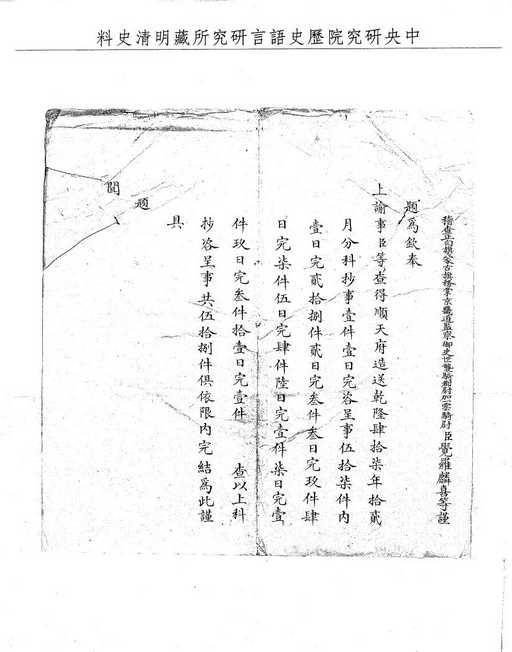 中央研究院歷史語言研究所藏明清史料
稽查正黃旗蒙古旗務掌京畿道監察御史世襲騎都尉加雲騎尉臣覺羅麟喜等謹
題為欽奉
上諭事臣等查得順天府造送乾隆肆拾柒年拾貳
月分科抄事壹件壹日完咨呈事伍拾柒件內
壹日完貳拾捌件貳日完叁件叁日完玖件肆
日完柒件伍日完肆件陸日完壹件柒日完壹
件玖日完叁件拾壹日完壹件 查以上科
抄咨呈事共伍拾捌件俱依限內完結為此謹
具
題
聞